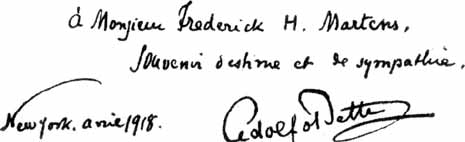 à Monsieur Frederick H. Martens,
Souvenir d'estime et de sympathie.
New York. avril 1918.
Adolfo Betti